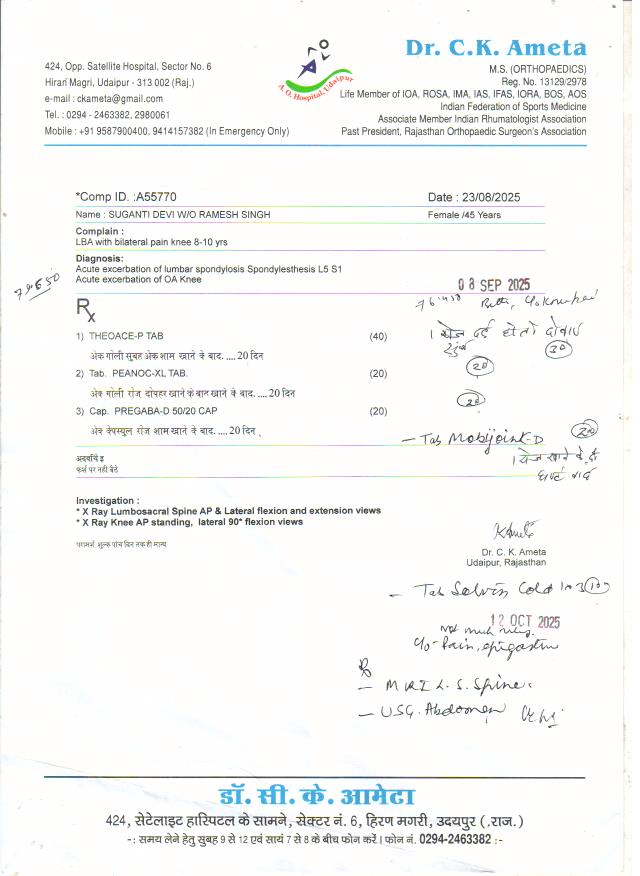 Dr. C.K. Ameta
424, Opp. Satellite Hospital, Sector No. 6
Hiran Magri, Udaipur - 313 002 (Raj.)
e-mail : ckameta@gmail.com
Tel. : 0294 - 2463382, 2980061
Mobile : +91 9587900400, 9414157382 (In Emergency Only)
A. O. Hospital, Udaipur
M.S. (ORTHOPAEDICS)
Reg. No. 13129/2978
Life Member of IOA, ROSA, IMA, IAS, IFAS, IORA, BOS, AOS
Indian Federation of Sports Medicine
Associate Member Indian Rhumatologist Association
Past President, Rajasthan Orthopaedic Surgeon's Association
*Comp ID. :A55770
Date : 23/08/2025
Name : SUGANTI DEVI W/O RAMESH SINGH
Female /45 Years
Complain :
LBA with bilateral pain knee 8-10 yrs
Diagnosis:
Acute excerbation of lumbar spondylosis Spondylesthesis L5 S1
Acute excerbation of OA Knee
08 SEP 2025
Rx
1) THEOACE-P TAB (40)
अेक गोली सुबह अेक शाम खाने के बाद. .... 20 दिन
(30)
2) Tab. PEANOC-XL TAB. (20)
(20)
अेक गोली रोज दोपहर खाने के बाद खाने के बाद. .... 20 दिन
(20)
3) Cap. PREGABA-D 50/20 CAP (20)
अेक केपस्यूल रोज शाम खाने के बाद. .... 20 दिन .
- Tab Mobijoint-D (20)
फर्श पर नही बैठे
Investigation :
* X Ray Lumbosacral Spine AP & Lateral flexion and extension views
* X Ray Knee AP standing, lateral 90* flexion views
परामर्श शुल्क पांच दिन तक ही मान्य
Dr. C. K. Ameta
Udaipur, Rajasthan
- Tab Solvin Cold
12 OCT 2025
Not much
c/o - Pain, epigastrium
Rx
- MRI L. S. Spine
- USG. Abdomen
डॉ. सी. के. आमेटा
424, सेटेलाइट हास्पिटल के सामने, सेक्टर नं. 6, हिरण मगरी, उदयपुर (.राज.)
-: समय लेने हेतु सुबह 9 से 12 एवं सायं 7 से 8 के बीच फोन करें । फोन नं. 0294-2463382 :-